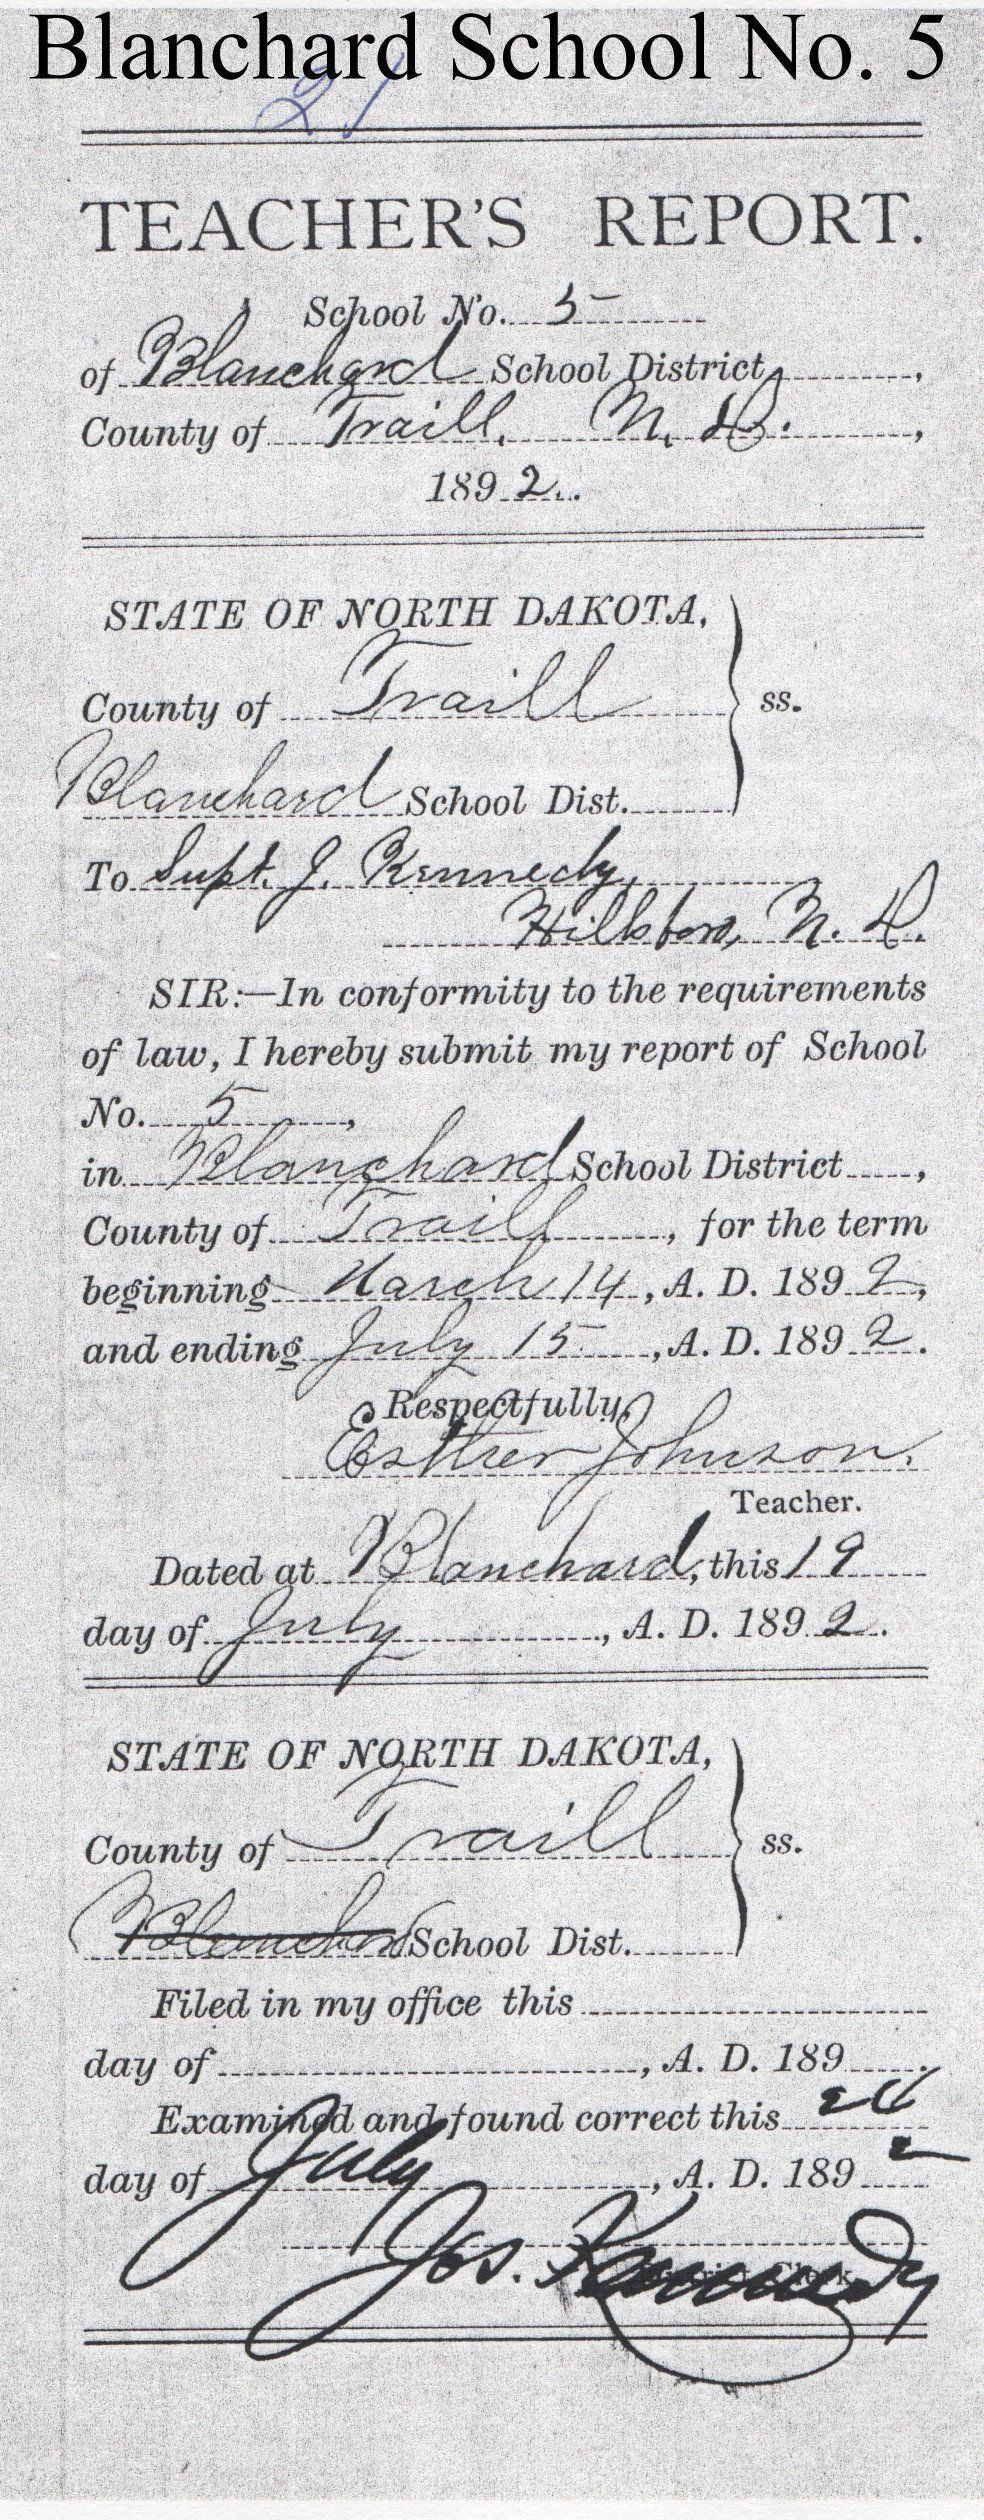 Blanchard School No. 5
21
TEACHER'S REPORT.
School No. 5
of Blanchard School District,
County of Traill, N. D.,
1892.
STATE OF NORTH DAKOTA,
County of Traill ss.
Blanchard School Dist.
To Supt. J. Kennedy,
Hillsboro, N. D.
SIR:—In conformity to the requirements
of law, I hereby submit my report of School
No. 5,
in Blanchard School District,
County of Traill, for the term
beginning March 14, A. D. 1892,
and ending July 15, A. D. 1892.
Respectfully,
Esther Johnson.
Teacher.
Dated at Blanchard, this 19
day of July, A. D. 1892.
STATE OF NORTH DAKOTA,
County of Traill ss.
Blanchard School Dist.
Filed in my office this
day of, A. D. 189.
Examined and found correct this
day of July, A. D. 1892
Jos. Kennedy
Clerk